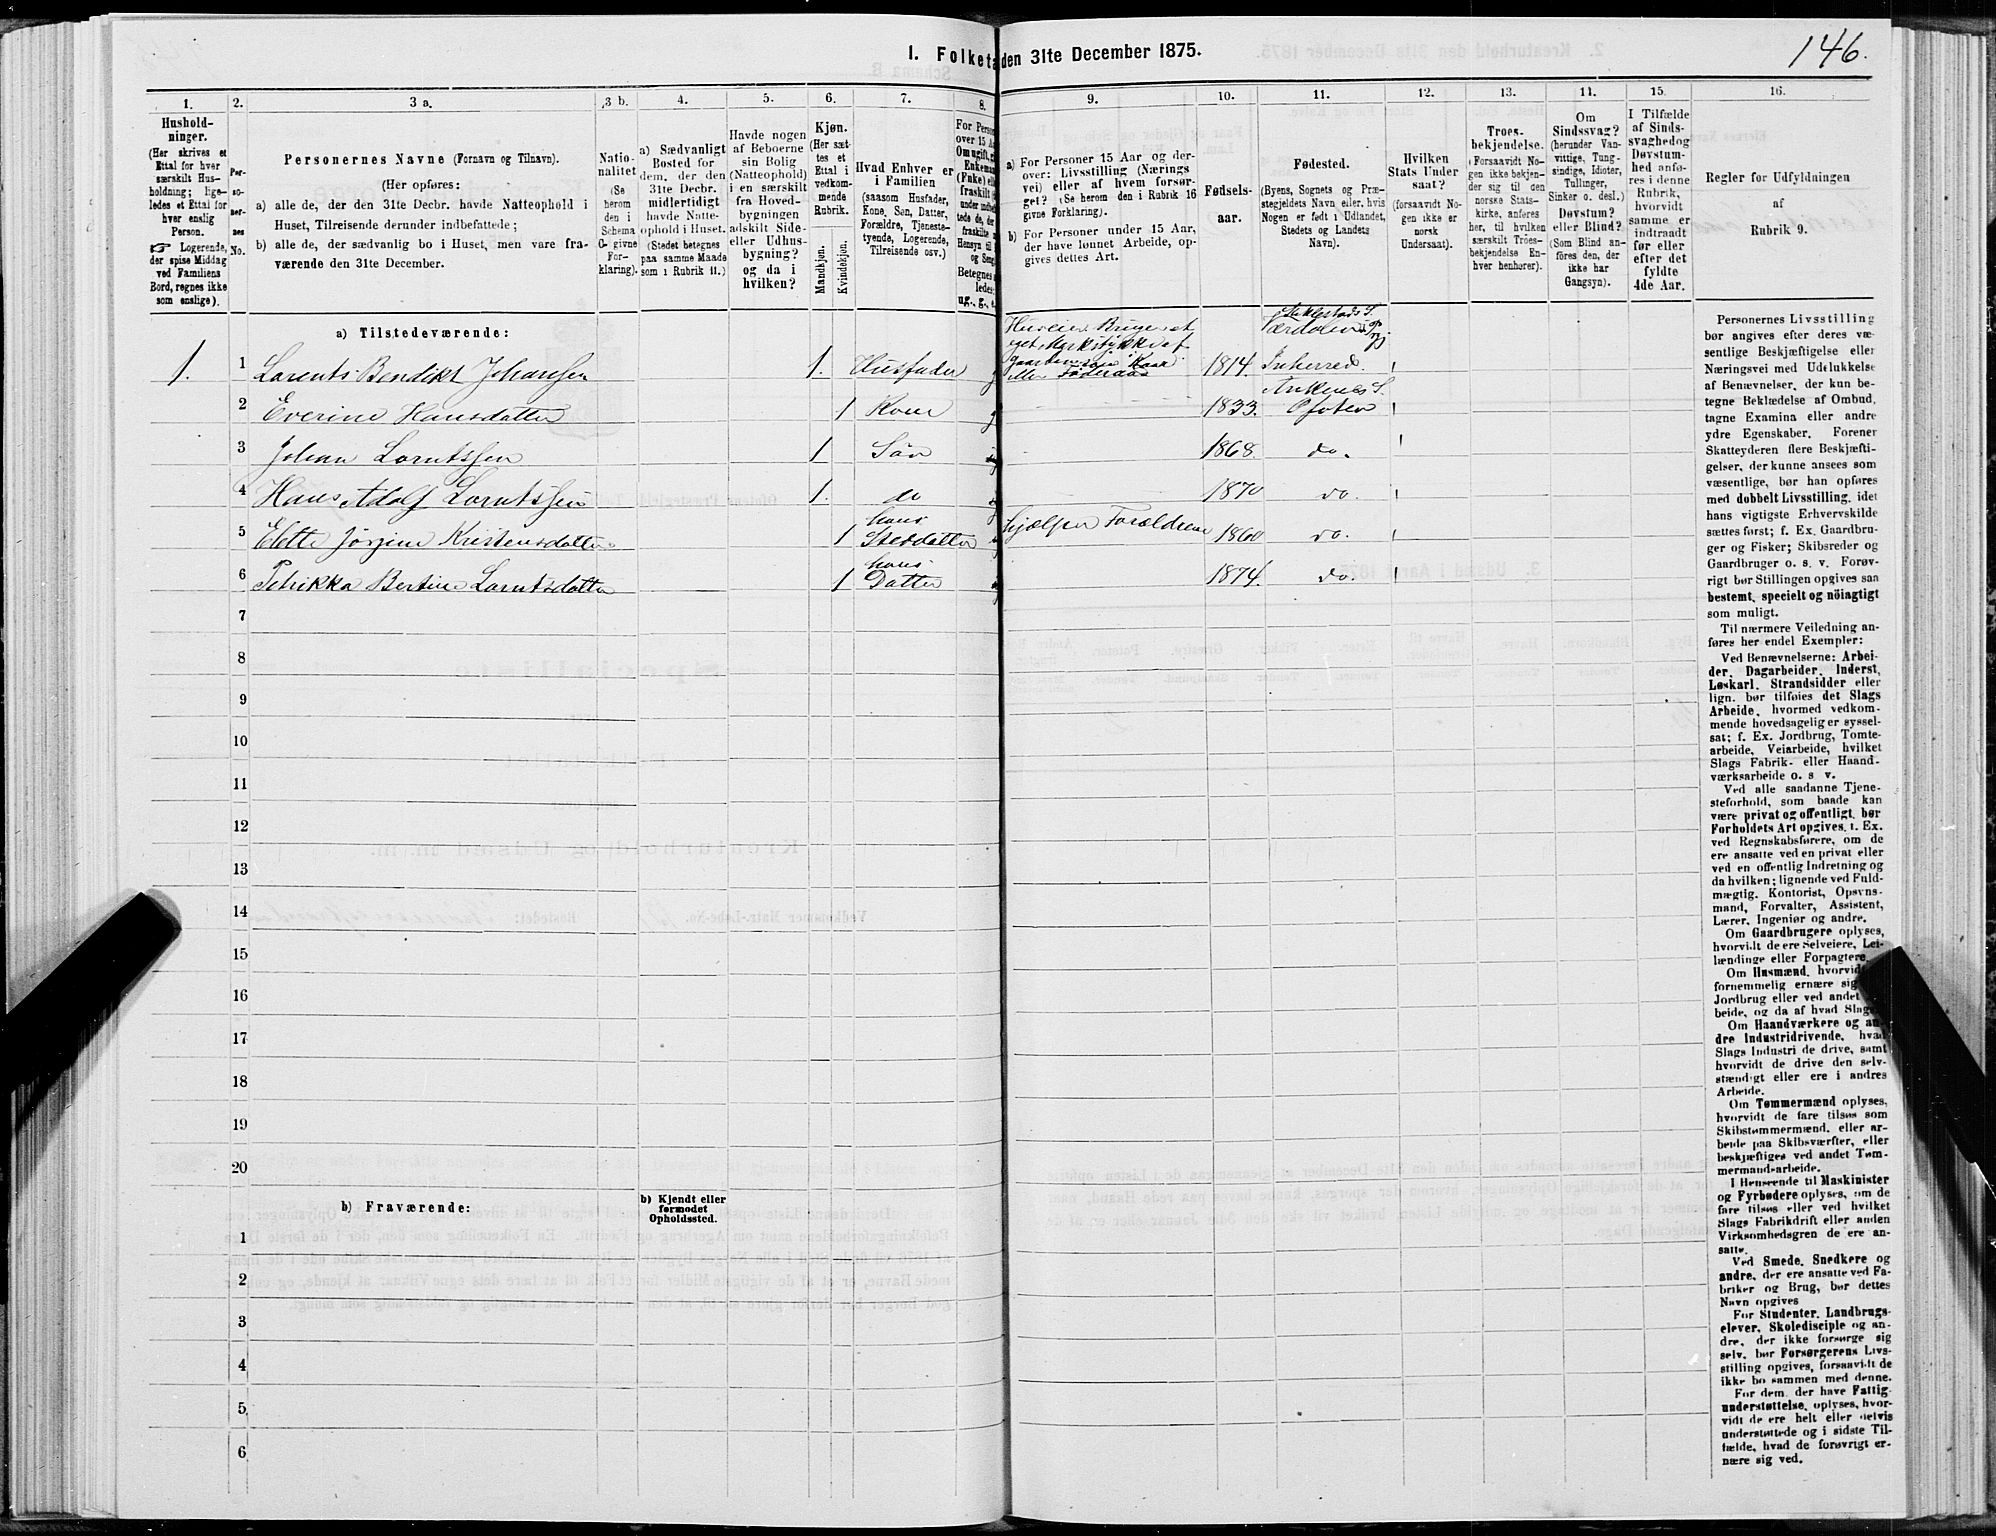 1. Folketæ den 31te December 1875.
146.
1.
Hushold-
ninger.
(Her skrives et
Ettal for hver
særskilt Hus-
holdning; lige-
ledes et Ettal for
hver enslig
Person.
☞ Logerende,
der spise Middag
ved Familiens
Bord, regnes ikke
som enslige).
2.
Per-
so-
ner-
nes
No.
3 a.
Personernes Navne (Fornavn og Tilnavn).
(Her opføres:
a) alle de, der den 31te Decbr. havde Natteophold i
Huset, Tilreisende derunder indbefattede;
b) alle de, der sædvanlig bo i Huset, men vare fra-
værende den 31te December.
3 b.
Natio-
nalitet
(Se
herom
den i
Schema
C- givne
For-
klaring).
4.
a) Sædvanligt
Bosted for
dem, der den
31te Decbr.
midlertidigt
havde Natte-
ophold i Huset.
(Stedet betegnes
paa samme Maade
som i Rubrik 11.)
5.
Havde nogen
af Beboerne
sin Bolig
(Natteophold)
i en særskilt
fra Hoved-
bygningen
adskilt Side-
eller Udhus-
bygning?
og da i
hvilken?
6.
Kjøn.
(Her sæt-
tes et
Ettal i
vedkom-
mende
Rubrik.
Mandkjøn.
Kvindekjøn.
7.
Hvad Enhver er
i Familien
(saasom Husfader,
Kone, Søn, Datter,
Forældre, Tjeneste-
tyende, Logerende,
Tilreisende osv.)
8.
For Person
over 15 A
Om ugift, g
Enkema
(Fuk) el
fraskilt
under indbe
tede de, de
fraskilte
Hensyn til
og Seng
Betegnes
ledes:
ug., g., e.
9.
a) For Personer 15 Aar og der-
over: Livsstilling (Nærings
vei) eller af hvem forsør-
get? (Se herom den i Rubrik 16
givne Forklaring).
b) For Personer under 15 Aar,
der have lønnet Arbeide, op-
gives dettes Art.
10.
Fødsels-
aar.
11.
Fødested.
(Byens, Sognets og Præ-
stegjeldets Navn eller, hvis
Nogen er født i Udlandet,
Stedets og Landets
Navn).
12.
Hvilken
Stats Under
saat?
(forsaavidt No-
gen ikke er
norsk
Undersaat).
13.
Troes-
bekjendelse.
(Forsaavidt No-
gen ikke bekjen-
der sig til den
norske Stats-
kirke, anføres
her, til hvilken
særskilt Troes-
bekjendelse En-
hver henhører).
11.
Om
Sindssvag?
(herunder Van-
vittige, Tung-
sindige, Idioter,
Tullinger,
Sinker o. desl.)
Døvstum?
eller Blind?
(Som Blind an-
føres den, der
ikke har
Gangsyn).
15.
I Tilfælde
af Sinds-
svaghedog
Døvstum-
hed anfø-
res i denne
Rubrik,
hvorvidt
samme er
indtraadt
før eller
efter det
fyldte
4de Aar.
16.
Regler for Udfyldningen
af
Rubrik 9.
a) Tilstedeværende:
1. 1 Lorents Bendikt Johansen 1. Husfader g Huseier, Bruger et gaardeneseie 1814. Stiklestads S. Værdalens Inherred.
2 Everine Hansdatter 1 Kone g 1833. Ankenes S. Ofoten
3 Johan Lorntssen 1 Søn 1868. do.
4 Hans Adolf Lorntssen 1. do 1870 do.
5 Elette Jørgine Kristensdatter 1 hans Steddatter Hjælper Forældrene 1860 do.
6 Petrikka Bertine Lorntsdatter 1 hans Datter 1874. do.
7
8
9
10
11
12
13
14
15
16
17
18
19
20
b) Fraværende:
b) Kjendt eller
formodet
Opholdssted.
1
2
3
4
5
6
Personernes Livsstilling
bør angives efter deres væ-
sentlige Beskjæftigelse eller
Næringsvei med Udelukkelse
af Benævnelser, der kun be-
tegne Beklædelse af Ombud,
tagne Examina eller andre
ydre Egenskaber. Forener
Skatteyderen flere Beskjæfti-
gelser, der kunne ansees som
væsentlige, bør han opføres
med dobbelt Livsstilling, idet
hans vigtigste Erhvervskilde
sættes først; f. Ex. Gaardbru-
ger og Fisker; Skibsreder og
Gaardbruger o. s. v. Forøv-
rigt bør Stillingen opgives saa
bestemt, specielt og nöiagtigt
som muligt.
Til nærmere Veiledning an-
føres her endel Exempler:
Ved Benævnelserne: Arbei-
der, Dagarbeider, Inderst,
Løskarl, Strandsidder eller
lign. bør tilføies det Slags
Arbeide, hvormed vedkom-
mende hovedsagelig er syssel-
sat; f. Ex. Jordbrug, Tomte-
arbeide, Veiarbeide, hvilket
Slags Fabrik- eller Haand-
værksarbeide o. s v.
Ved alle saadanne Tjene-
steforhold, som baade kan
være privat og offentligt, bør
Forholdets Art opgives, t. Ex.
ved Regnskabsførere, om de
ere ansatte ved en privat eller
ved en offentlig Indretning og
da hvilken; lignende ved Fuld-
mægtig, Kontorist, Opsyns-
mand, Forvalter, Assistent,
Lærer, Ingeniør og andre.
Om Gaardbrugere oplyses,
hvorvidt de ere Selveiere, Lei-
lændinge eller Forpagtere.
Om Husmænd, hvorvidt
fornemmelig ernære sig
Jordbrug eller ved andet
beide, og da af hvad Slags
Om Haandværkere og an-
dre Industridrivende, hvad
Slags Industri de drive, samt
hvorvidt de drive den selv-
stændigt eller ere i andres
Arbeide.
Om Tømmermænd oplyses,
hvorvidt de fare tilsøs som
Skibstømmermænd, eller ar-
beide paa Skibsværfter, eller
beskjæftiges ved andet Tøm-
mermandsarbeide.
I Henseende til Maskinister
og Fyrbødere oplyses, om de
fare tilsøs eller ved hvilket
Slags Fabrikdrift eller anden
Virksomhedsgren de ere an-
satte.
Ved Smede, Snedkere og
andre, der ere ansatte ved Fa-
briker og Brug, bør dettes
Navn opgives
For Studenter, Landbrugs-
elever, Skoledisciple og an-
dre, der ikke forsørge sig
selv, bør Forsørgerens Livs-
stilling opgives, forsaavidt de
ikke bo sammen med denne.
For dem, der have Fattig-
understøttelse, oplyses, hvor-
vidt de ere helt eller delvis
understøttede og i sidste Til-
fælde, hvad de forøvrigt er-
nære sig ved.